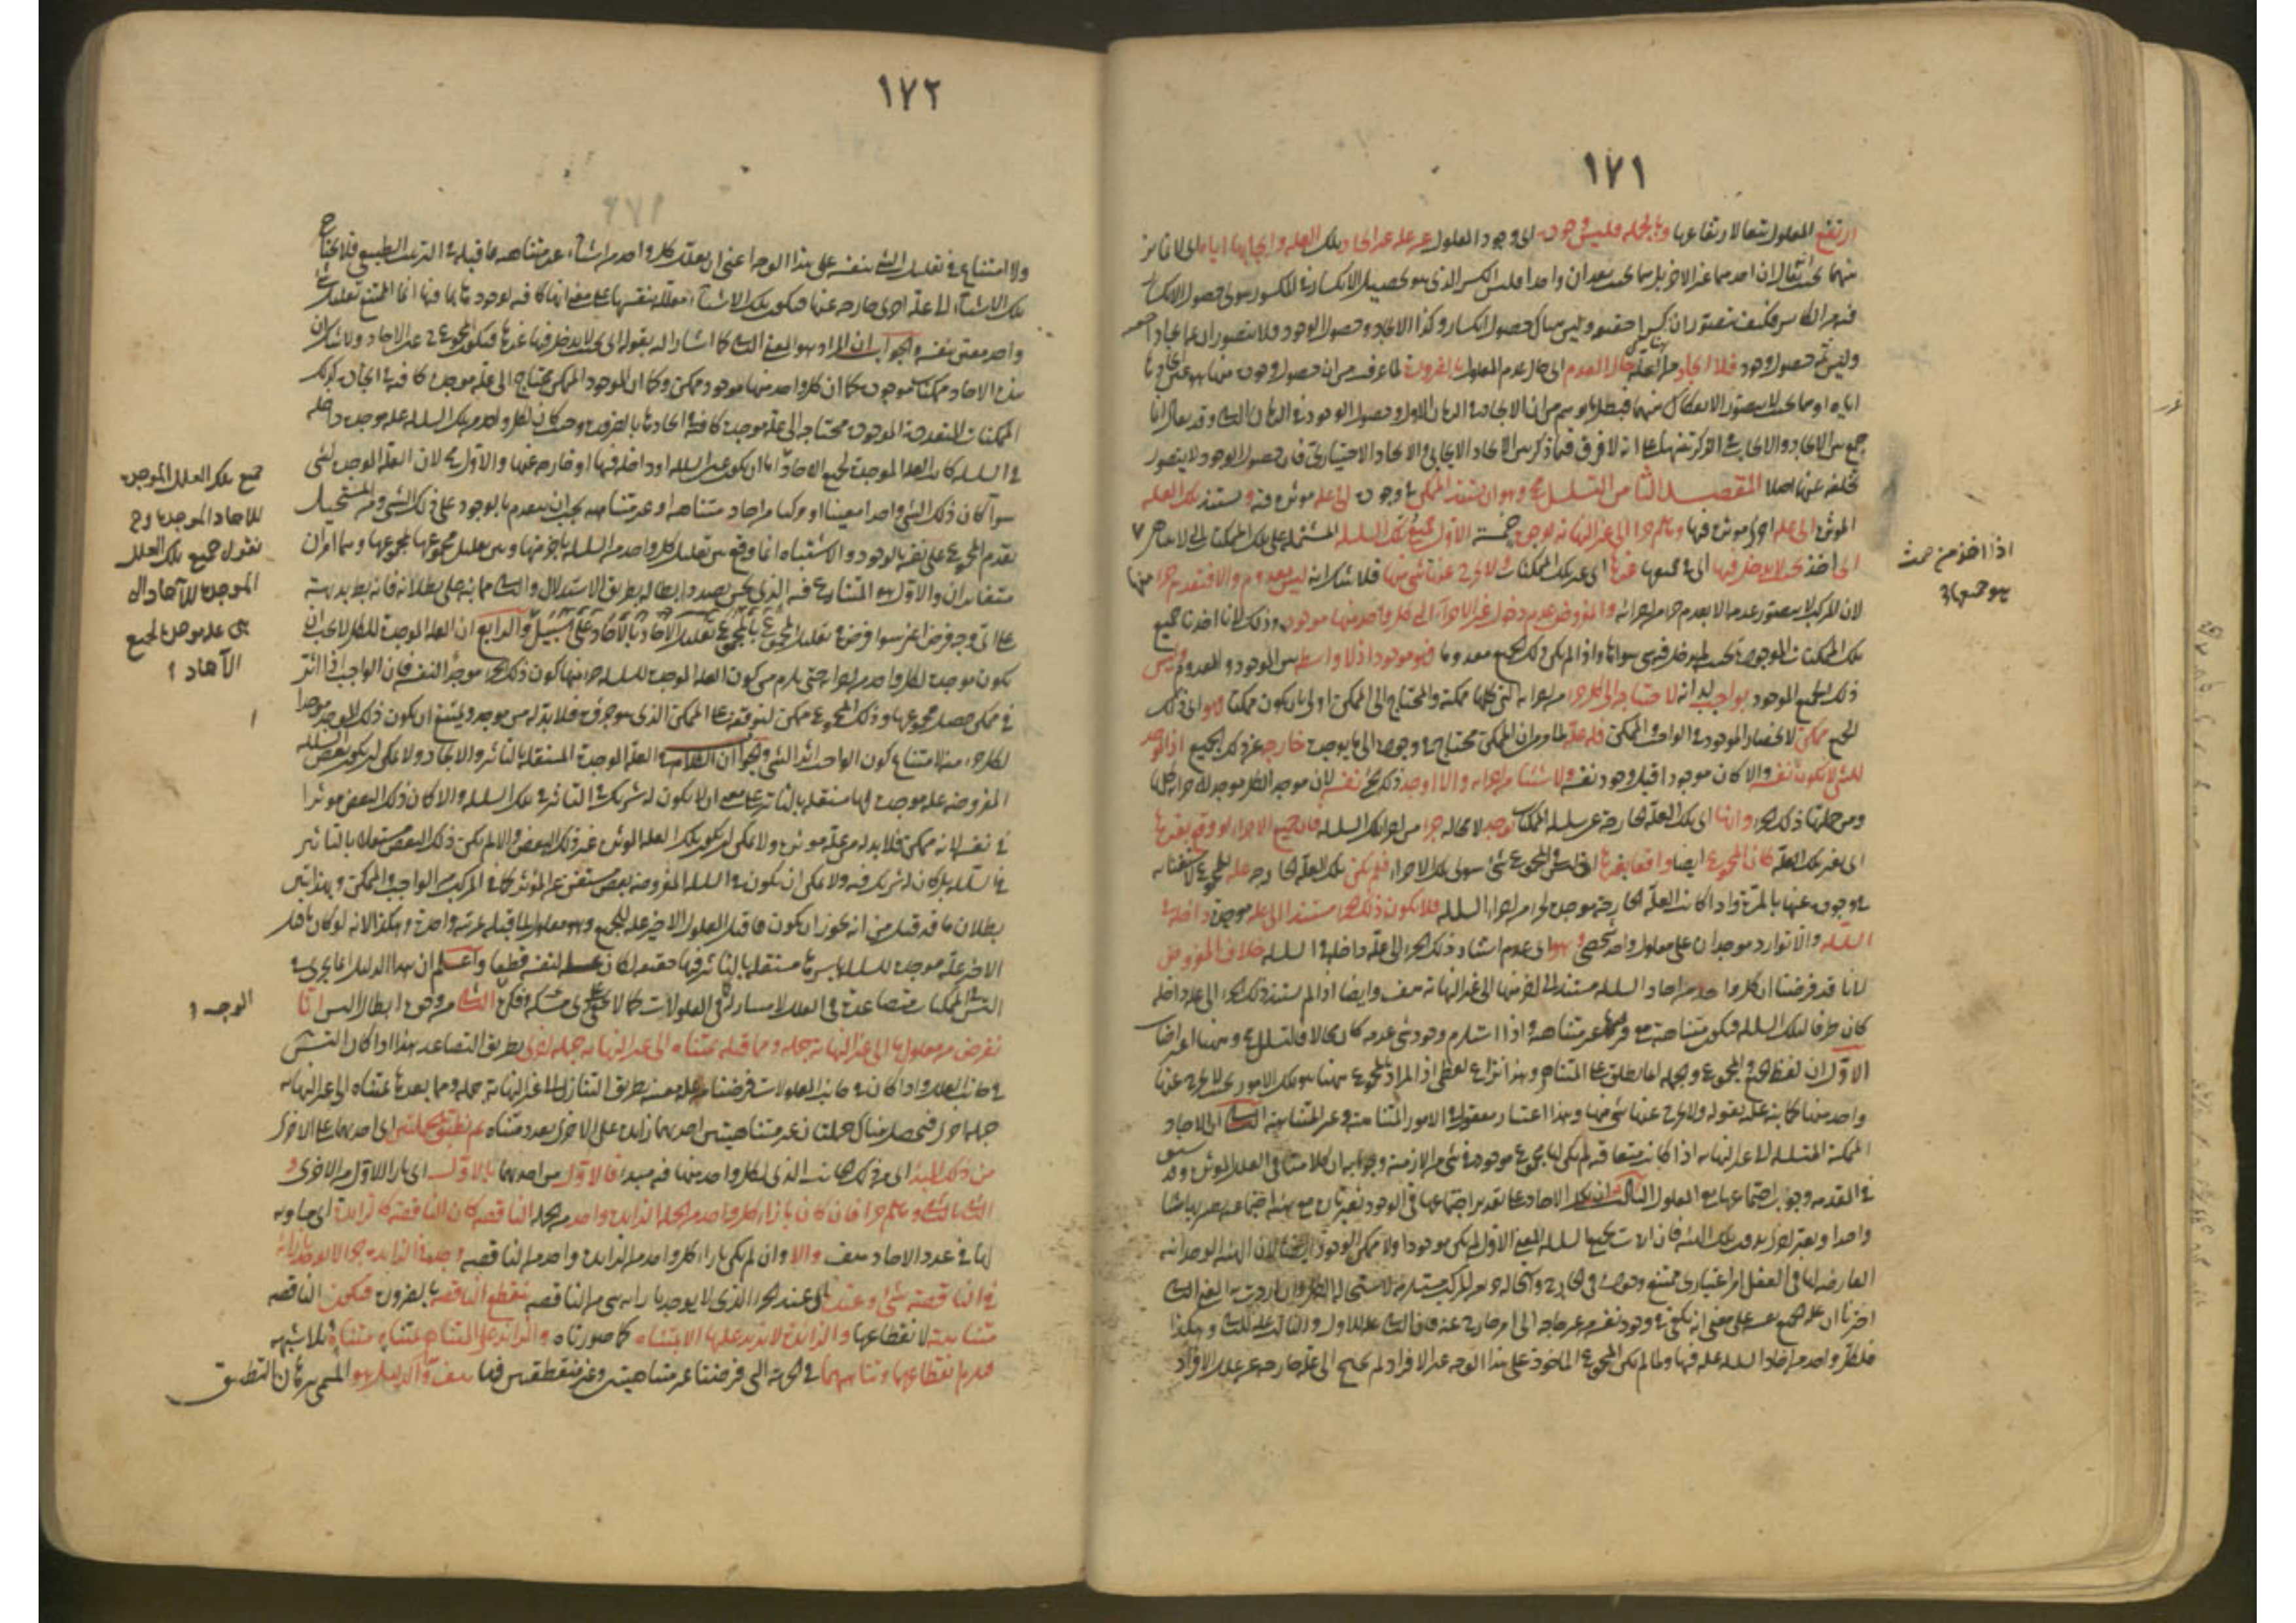 ١٧١
ارتفع المعلول تبعا لارتفاعها وبالجملة فليس وجوده اى وجود المعلول عن علة غير ايجاد تلك العلة وايجابها اياه اى لا تمايز
بينهما بحيث يقال ان احدهما عن الاخر بل هما بحيث يعدان واحدا فليس الكسر الذى هو تحصيل الانكسار فى المكسور سوى حصول الانكسار
فيه من الكاسر فكيف يتصور ان كسرا حقيقيا وليس هناك حصول انكسار وكذا الايجاد وحصول الوجود فلا يتصور ان هناك ايجادا
وليس ثمة حصول وجود فلا ايجاد من العلة حال العدم اى حال عدم المعلول بالضرورة لما عرفت من ان حصول وجوده منها هو عين ايجادها
اياه او هما بحيث لا يتصور الانفكاك بينهما فبطل ما توهم من ان الايجاد فى الزمان الاول وحصول الوجود فى الزمان الثانى وقد يقال انما
جمع بين الايجاد والايجاب فى الذكر تنبيها على انه لا فرق فيما ذكر بين الايجاد الايجابى والايجاد الاختيارى فان حصول الوجود لا يتصور
تخلفه عنهما اصلا المقصد الثامن التسلسل محال وهو ان يستند الممكن فى وجوده الى علة مؤثرة فيه وتستند تلك العلة
المؤثرة الى علة اخرى مؤثرة فيها وهلم جرا الى غير النهاية لوجوه خمسة الاول جميع تلك السلسلة المشتملة على تلك الممكنات التى لا تتناهى
اى اخذ بحيث لا يدخل فيها اى فى جميعها غيرها اى غير تلك الممكنات ولا يخرج عنها شىء منها فلا شك انه ليس بمعدوم والا فبعدم جزء منها
لان المركب لا يتصور عدمه الا بعدم جزء من اجزائه والمفروض عدم دخول غير الاجزاء التى كل واحد منها موجود وذلك لانا اخذنا جميع
تلك الممكنات الموجودة بحيث لم يدخل فيه سواها واذا لم يكن ذلك الجميع معدوما فهو موجود اذ لا واسطة بين الموجود والمعدوم وليس
ذلك الجميع الموجود بواجب لذاته لاحتياجه الى كل جزء من اجزائه التى كلها ممكنة والمحتاج الى الممكن اولى بان يكون ممكنا فهو اى ذلك
الجميع ممكن لانحصار الموجود فى الواجب والممكن فله علة لما مر من ان الممكن محتاج فى وجوده الى ما يوجده خارجة عن ذلك الجميع اذ الموجد
للشىء لا يكون نفسه والا كان موجودا قبل وجود نفسه ولا شيئا من اجزائه والا اوجد ذلك الجزء نفسه لان موجد الكل موجد لاجزائه كلها
ومن جملتها ذلك الجزء وانها اى تلك العلة الخارجة عن سلسلة الممكنات توجد لا محالة جزءا من اجزاء تلك السلسلة فان جميع الاجزاء لو وقع بغيرها
اى بغير تلك العلة كان المجموع ايضا واقعا بغيرها اذ ليس فى المجموع شىء سوى تلك الاجزاء فلم تكن تلك العلة الخارجة علة للمجموع لاستغنائه
فى وجوده عنها بالمرة واذا كانت العلة الخارجة موجدة لجزء من اجزاء السلسلة فلا يكون ذلك الجزء مستندا الى علة موجدة داخلة فى
السلسلة والا توارد موجدان على معلول واحد شخصى وهو اى عدم استناد ذلك الجزء الى علة داخلة فى السلسلة خلاف المفروض
لانا قد فرضنا ان كل واحد من احاد السلسلة مستند الى اخر منها الى غير النهاية هف وايضا اذا لم يستند ذلك الجزء الى علة داخلة
كان طرفا لتلك السلسلة فتكون متناهية مع فرضها غير متناهية واذا استلزم وجود شىء عدمه كان محالا فالتسلسل محال وههنا اعتراضات
الاول ان لفظ الجميع والمجموع والجملة انما يطلق على المتناهى وهذا نزاع لفظى اذ المراد بالمجموع ههنا هو تلك الامور بحيث لا يخرج عنها
واحد منها كما نبه عليه بقوله ولا يخرج عنها شىء منها وهذا اعتبار معقول فى الامور المتناهية وغير المتناهية الثانى ان الاحاد
الممكنة المتسلسلة الى غير النهاية اذا كانت متعاقبة لم يكن لها مجموع موجود فى شىء من الازمنة وجوابه ان كلامنا فى العلل المؤثرة وقد سبق
فى المقدمة وجوب اجتماعها مع المعلول الثالث ان تلك الاحاد على تقدير اجتماعها فى الوجود تعتبر تارة مع هيئة اجتماعية تصير بها شيئا
واحدا وتعتبر اخرى بدون تلك الهيئة فان اردت بجميع السلسلة المعنى الاول لم يكن موجودا ولا ممكن الوجود ايضا لان الهيئة الوحدانية
العارضة لها فى العقل امر اعتبارى ممتنع وجوده فى الخارج واستحالة جزء المركب مستلزمة لاستحالة الكل وان اردت به المعنى الثانى
اخترنا ان علة الجميع نفسه على معنى انه يكفى فى وجوده نفسه من غير حاجة الى امر خارج عنه فان الثانى علة للاول والثالث علة للثانى وهكذا
فلكل واحد من احاد السلسلة علة فيها ولما لم يكن المجموع المأخوذ على هذا الوجه غير الافراد لم يحتج الى علة خارجة عن علل الافراد
اذا اخذ من حيث
هو جميعها
١٧٢
ولا امتناع فى تعليل الشىء بنفسه على هذا الوجه اعنى ان يعلل كل واحد من اشياء غير متناهية بما قبله فى الترتيب الطبيعى فلا يحتاج
تلك الاشياء الى علة اخرى خارجة عنها فتكون تلك الاشياء معللة بنفسها على معنى انها كافية لوجودها بما فيها انما الممتنع تعليل شىء
واحد معين بنفسه والجواب ان المراد هو المعنى الثانى كما اشار اليه بقوله اى بحيث لا يدخل فيها غيرها فيكون المجموع ح عين الاحاد ولا شك ان
هذه الاحاد ممكنات موجودة كما ان كل واحد منها موجود ممكن وكما ان الموجود الممكن محتاج الى علة موجدة كافية فى ايجاده كذلك
الممكنات المتعددة الموجودة محتاجة الى علة موجدة كافية فى ايجادها بالضرورة وحيث كان لكل واحد من تلك السلسلة علة موجدة داخلة
فى السلسلة كانت العلة الموجدة لجميع الاحاد اما ان يكون عين السلسلة او داخلة فيها او خارجة عنها والاول محال لان العلة الموجدة لشىء
سواء كان ذلك الشىء واحدا معينا او مركبا من احاد متناهية او غير متناهية يجب ان يتقدم بالوجود على ذلك الشىء ومن المستحيل
تقدم المجموع على نفسه بالوجود والاشتباه انما وقع بين تعليل كل واحد من السلسلة باخر منها وبين تعليل مجموعها بمجموعها وهما امران
متغايران والاول هو المتنازع فيه الذى نحن بصدد ابطاله بطريق الاستدلال والثانى مما نبه على بطلانه فانه بط بديهة
على اى وجه فرض اعنى سواء فرض تعليل المجموع بالمجموع تعليل الاحاد بالاحاد على سبيل الرابع ان العلة الموجدة للكل لا يجب ان
تكون موجدة لكل واحد من اجزائه حتى يلزم من كون العلة الموجدة للسلسلة جزءا منها كون ذلك الجزء موجدا لنفسه فان الواجب اذا اثر
فى ممكن حصل مجموعهما وذلك المجموع ممكن لتوقفه على الممكن الذى هو جزءه فلا بد له من موجد ويمتنع ان يكون ذلك الموجد موجدا
لكل جزء منه لامتناع كون الواجب اثرا لشىء والجواب ان الكلام فى العلة الموجدة المستقلة بالتأثير والايجاد ولا يمكن ان يكون بعض السلسلة
المفروضة علة موجدة لها مستقلة بالتأثير على معنى ان لا يكون له شريك فى التأثير فى تلك السلسلة والا كان ذلك البعض مؤثرا
فى نفسه لانه ممكن فلا بد له من علة مؤثرة ولا يمكن ان يكون تلك العلة المؤثرة غير ذلك البعض والا لم يكن ذلك البعض مستقلا بالتأثير
فى السلسلة بل كان له شريك فيه ولا يمكن ان يكون فى السلسلة المفروضة بعض مستغن عن المؤثر كما فى المركب من الواجب والممكن وبهذا تبين
بطلان ما قد قيل من انه يجوز ان يكون ما قبل المعلول الاخير علة للجميع وهو معلول لما قبله بمرتبة واحدة وهكذا لانه لو كان ما قبل
الاخير علة موجدة للسلسلة باسرها مستقلة بالتأثير فيها حقيقة لكان علة لنفسه قطعا واعلم ان هذا الدليل انما يجرى فى
التسلسل فى الممكنات متصاعدة فى العلل لا متسارلة فى المعلولات كما لا يخفى على ذى مسكة فى فكره الثانى من وجوه ابطال التسلسل انا
نفرض من معلول ما الى غير النهاية جملة ومما قبله بمتناه الى غير النهاية جملة اخرى بطريق التصاعد هذا اذا كان التسلسل
فى جانب العلل واذا كان فى جانب المعلولات فرضنا من علة معينة بطريق التنازل الى غير النهاية جملة ومما بعدها بمتناه الى غير النهاية
جملة اخرى فيحصل هناك جملتان غير متناهيتين احديهما زائدة على الاخرى بعدد متناه ثم نطبق الجملتين اى احديهما على الاخرى
من ذلك المبدأ اى من ذلك الجانب الذى لكل واحد منهما فيه مبدأ فالاول من احديهما بالاول اى بازاء الاول من الاخرى و
الثانى بالثانى وهلم جرا فان كان بازاء كل واحد من الجملة الزائدة واحد من الجملة الناقصة كان الناقصة كالزائدة اى مساوية
لها فى عدد الاحاد هف والا وان لم يكن بازاء كل واحد من الزائدة واحد من الناقصة وجد فى الزائدة جزء لا يوجد بازائه
فى الناقصة شىء وعنده اى عند الجزء الذى لا يوجد بازائه شىء من الناقصة تنقطع الناقصة بالضرورة فتكون الناقصة
متناهية لانقطاعها والزائدة لا تزيد عليها الا بمتناه كما صورناه والزائد على المتناهى بمتناه متناه بلا شبهة
فيلزم انقطاعهما وتناهيهما فى الجهة التى فرضناهما غير متناهيتين وغير منقطعتين فيها هف وهذا الدليل هو المسمى ببرهان التطبيق
جميع تلك العلل الموجدة
للاحاد الموجدة وح
نقول جميع تلك العلل
الموجدة للآحاد ال
هى علة موجدة لجميع
الآحاد
الوجه